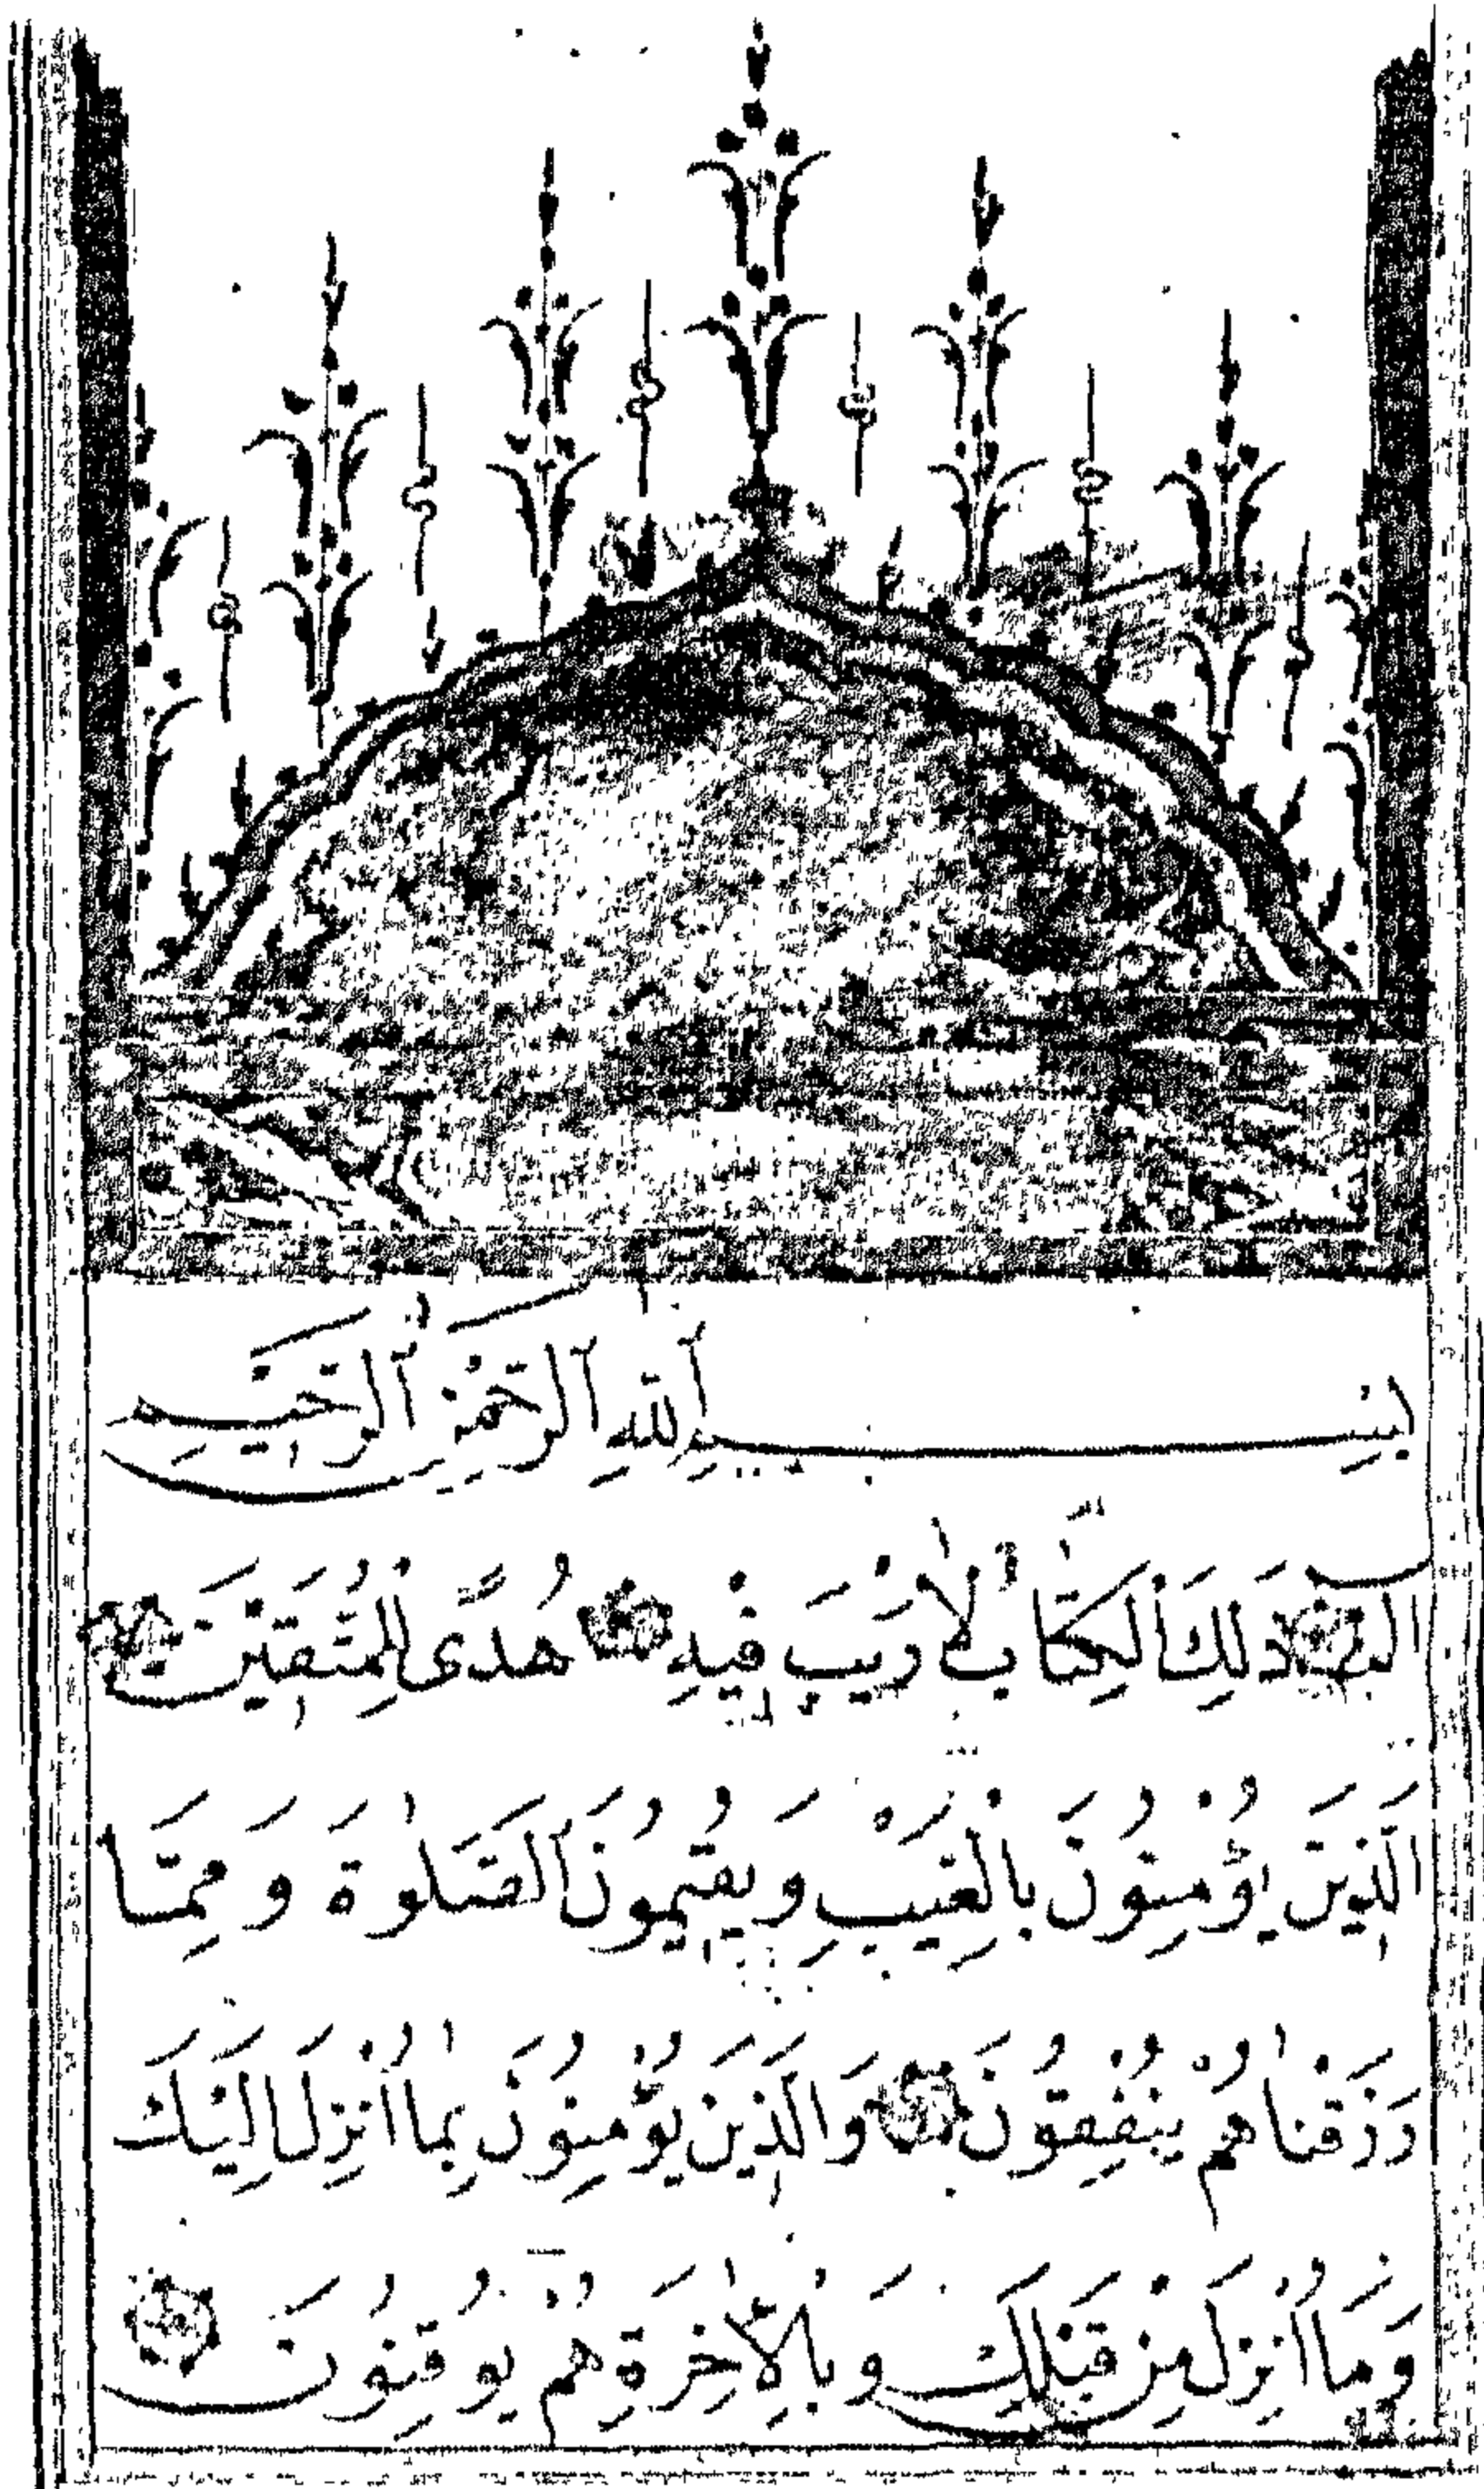 بِسْمِ اللهِ الرَّحْمٰنِ الرَّحِيمِ
الٓمٓ ذٰلِكَ الْكِتَابُ لَا رَيْبَ فِيهِ هُدًى لِلْمُتَّقِينَ
الَّذِينَ يُؤْمِنُونَ بِالْغَيْبِ وَيُقِيمُونَ الصَّلٰوةَ وَمِمَّا
رَزَقْنَاهُمْ يُنْفِقُونَ وَالَّذِينَ يُؤْمِنُونَ بِمَا أُنْزِلَ إِلَيْكَ
وَمَا أُنْزِلَ مِنْ قَبْلِكَ وَبِالْاٰخِرَةِ هُمْ يُوقِنُونَ